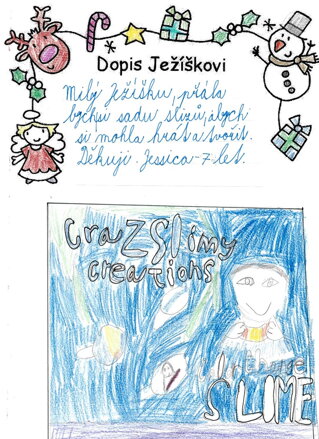 Dopis Ježíškovi
Milý Ježíšku, přála
bych si sadu slizů, abych
si mohla hrát a tvořit.
Děkuji. Jessica - 7 let.
CraZSlimy
creations
SLIME